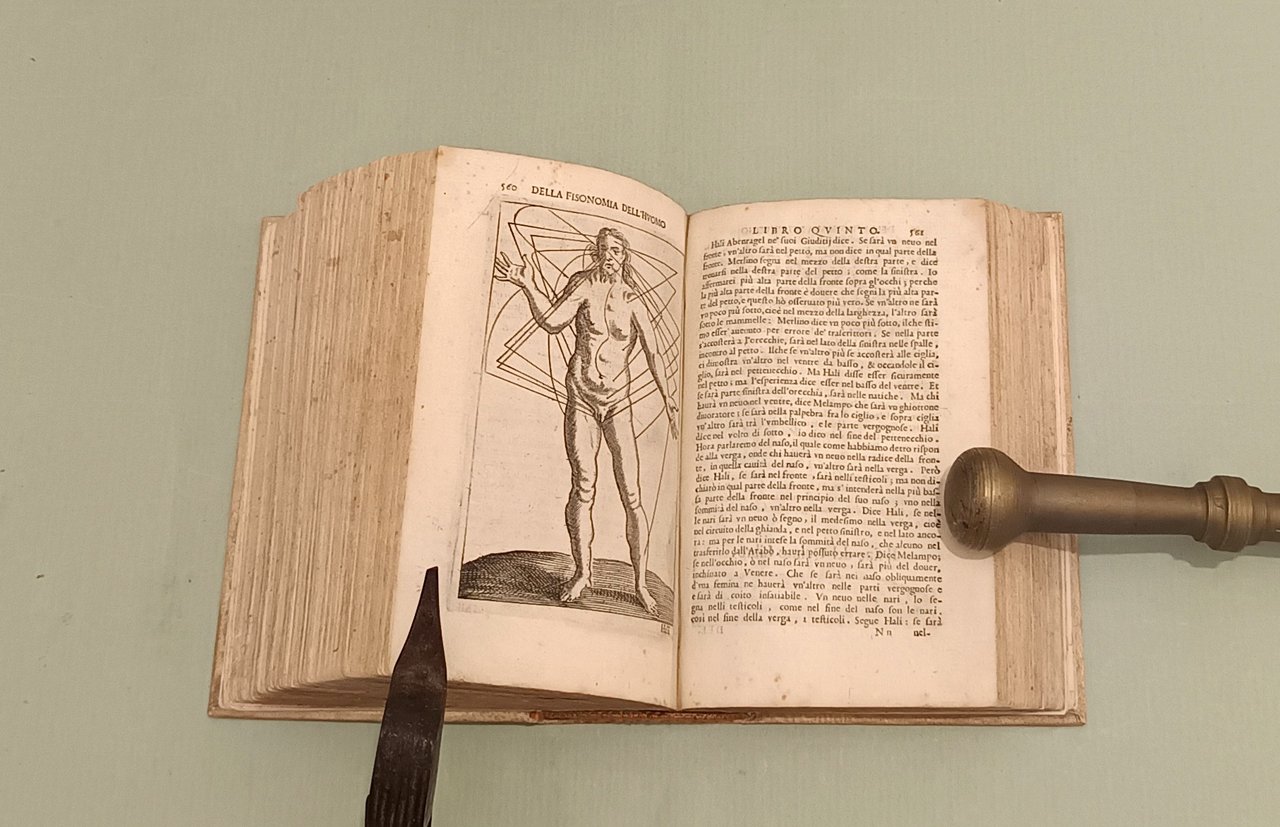 560 DELLA FISONOMIA DELL'HVOMO
LIBRO QVINTO. 561
Hali Abenragel ne' suoi Giuditij dice. Se sarà vn neuo nel
fronte, vn'altro sarà nel petto, ma non dice in qual parte della
fronte. Merlino segna nel mezzo della destra parte, e dice
trouarsi nella destra parte del petto; come la sinistra. Io
affermarei più alta parte della fronte sopra gl'occhi; perche
la più alta parte della fronte è douere che segni la più alta par-
te del petto, e questo hò osseruato più vero. Se vn'altro ne sarà
vn poco più sotto, cioè nel mezzo della larghezza, l'altro sarà
sotto le mammelle: Merlino dice vn poco più sotto, ilche sti-
mo esser' auenuto per errore de' trascrittori. Se nella parte
s'accosterà a l'orecchie, sarà nel lato della sinistra nelle spalle,
incontro al petto. Ilche se vn'altro più se accosterà alle ciglia,
ci dimostra vn'altro nel ventre da basso, & occandole il ci-
glio, sarà nel pettenecchio. Ma Hali disse esser sicuramente
nel petto; ma l'esperienza dice esser nel basso del ventre. Et
se sarà parte sinistra dell'orecchia, sarà nelle natiche. Ma chi
haurà vn neuo nel ventre, dice Melampo che sarà vn ghiottone
diuoratore: se sarà nella palpebra fra lo ciglio, e sopra ciglia
vn'altro sarà trà l'vmbellico, e le parte vergognose. Hali
dice nel volto di sotto, io dico nel fine del pettenecchio.
Hora parlaremo del naso, il quale come habbiamo detto rispon
de alla verga, onde chi hauerà vn neuo nella radice della fron-
te, in quella cauità del naso, vn'altro sarà nella verga. Però
dice Hali, se sarà nel fronte, sarà nelli testicoli; ma non di-
chiarò in qual parte della fronte, ma s'intenderà nella più bas-
sa parte della fronte nel principio del suo naso; vno nella
sommità del naso, vn'altro nella verga. Dice Hali, se nel-
le nari sarà vn neuo ò segno, il medesimo nella verga, cioè
nel circuito della ghianda, e nel petto sinistro, e nel lato anco-
ra: ma per le nari intese la sommità del naso, che alcuno nel
trasferirlo dall'Arabò, haurà possuto errare. Dice Melampo;
se nell'occhio, ò nel naso sarà vn neuo, sarà più del douer,
inchinato a Venere. Che se sarà nel naso obliquamente
d'vna femina ne hauerà vn'altro nelle parti vergognose e
e sarà di coito insatiabile. Vn neuo nelle nari, lo se-
gna nelli testicoli, come nel fine del naso son le nari,
così nel fine della verga, i testicoli. Segue Hali: se sarà
N n nel-